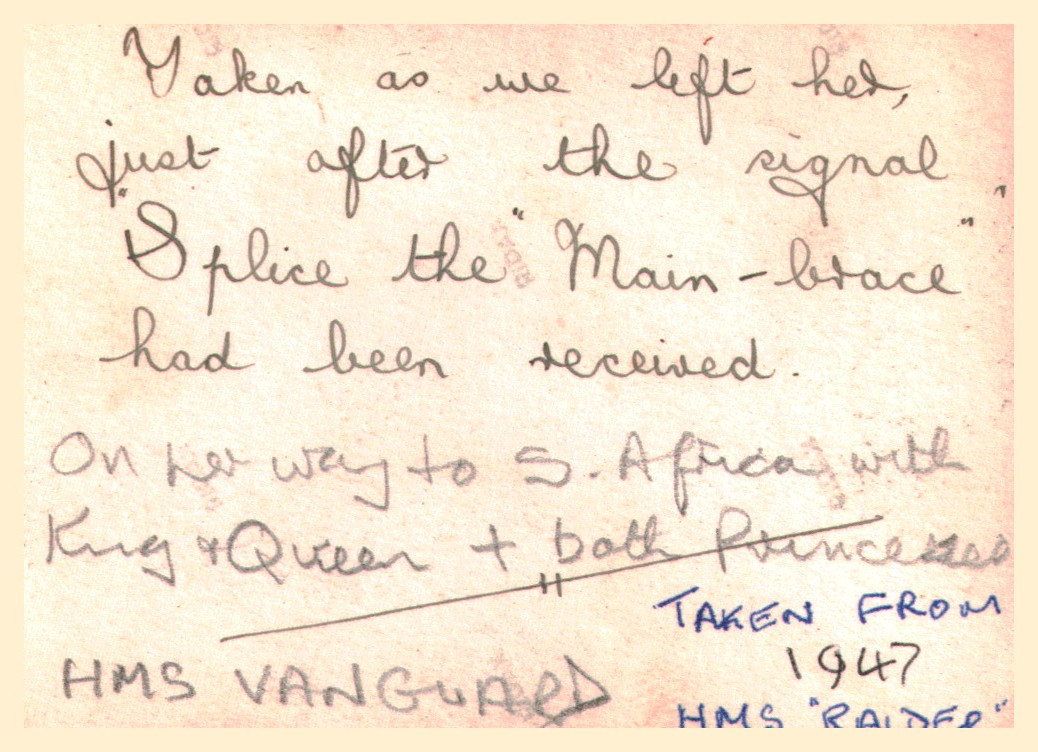 Taken as we left her,
just after the signal
"Splice the" "Main-brace"
had been received.
On her way to S. Africa with
King + Queen + both Princesses
HMS VANGUARD
TAKEN FROM
1947
HMS "RAIDER"